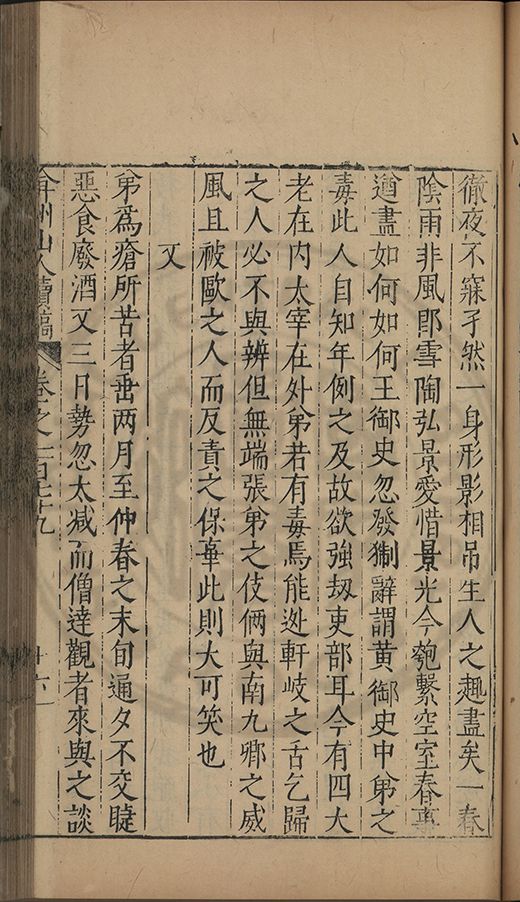 徹夜不寐孑然一身形影相吊生人之趣盡矣一春
陰雨非風即雪陶弘景愛惜景光今匏繫空室春事
遒盡如何如何王御史忽發猘辭謂黃御史中弟之
毒此人自知年例之及故欲強刼吏部耳今有四大
老在内太宰在外弟若有毒焉能逃軒岐之舌乞歸
之人必不與辨但無端張弟之伎倆與南九卿之威
風且被歐之人而反責之保辜此則大可笑也
又
弟為瘡所苦者垂两月至仲春之末旬通夕不交睫
惡食廢酒又三日勢忽太減而僧達觀者來與之談
弇州山人續稿
卷之一百七十九
十六